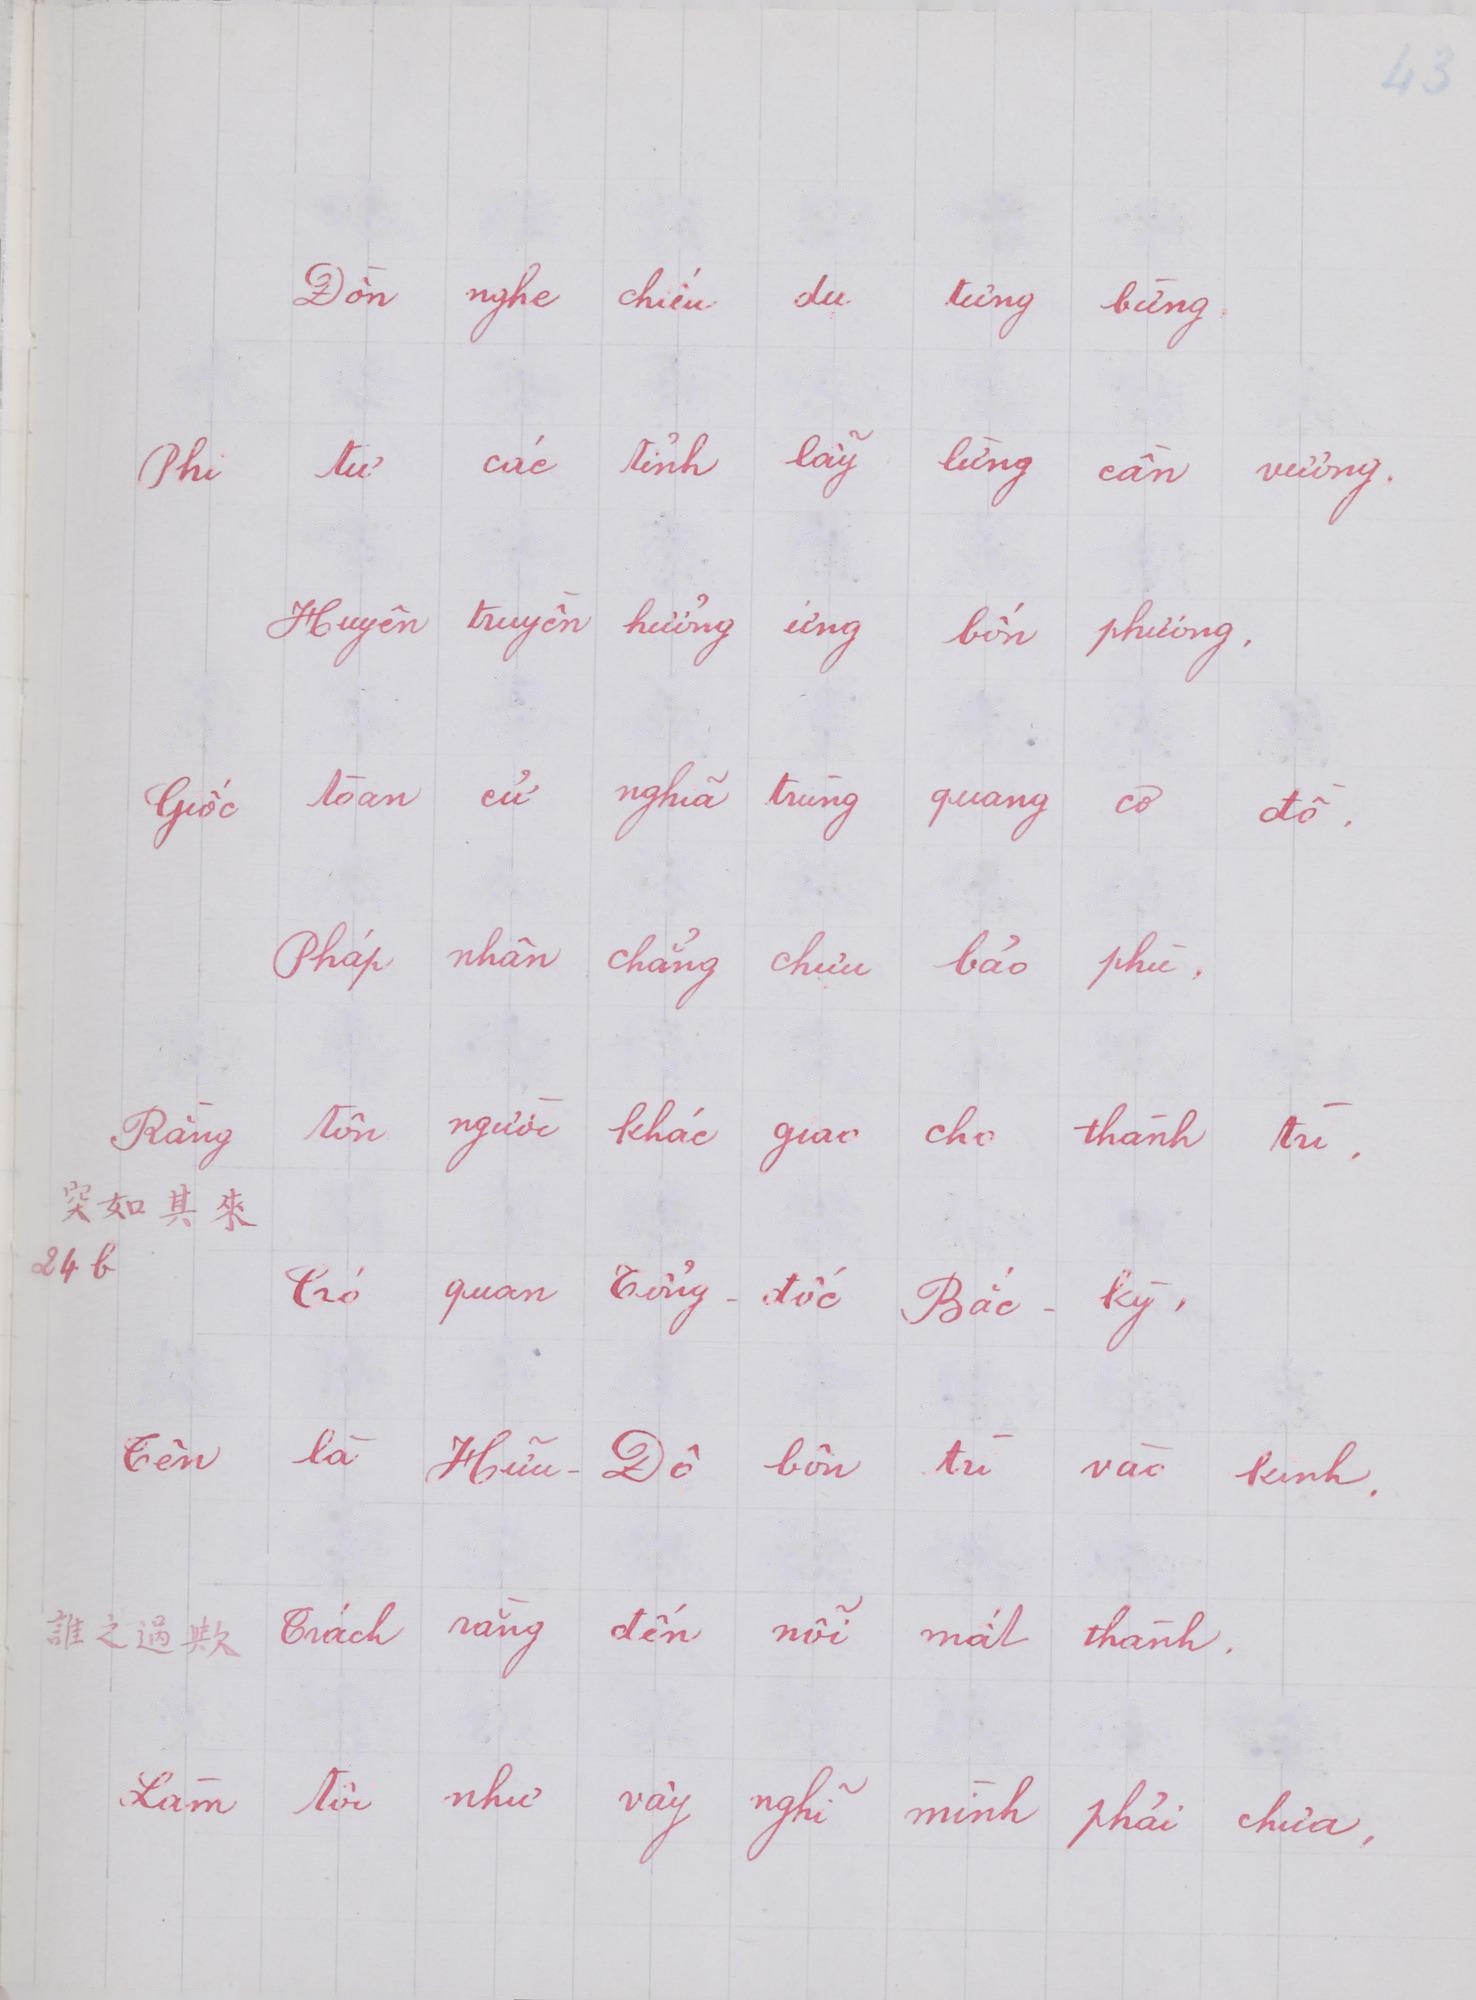 43
Đồn nghe chiếu dụ tưng bừng.
Phi tư các tỉnh lẫy lừng cần vương.
Huyên truyền hưởng ứng bốn phương,
Giốc tòan cử nghĩa trùng quang cơ đồ.
Pháp nhân chẳng chựu bảo phù,
Rằng tôn người khác giao cho thành trì.
突如其來
24 b
Có quan Tổng-đốc Bắc-kỳ,
Tên là Hữu-Độ bôn trì vào kinh.
誰之過歟 Trách rằng đến nỗi mất thành.
Làm tôi như vậy nghĩ mình phải chưa,